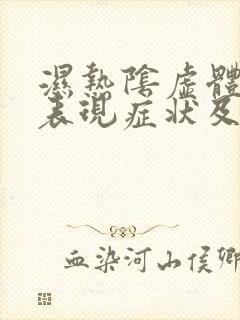 濕熱陰虛體
表現症狀及
血染河山侯卿